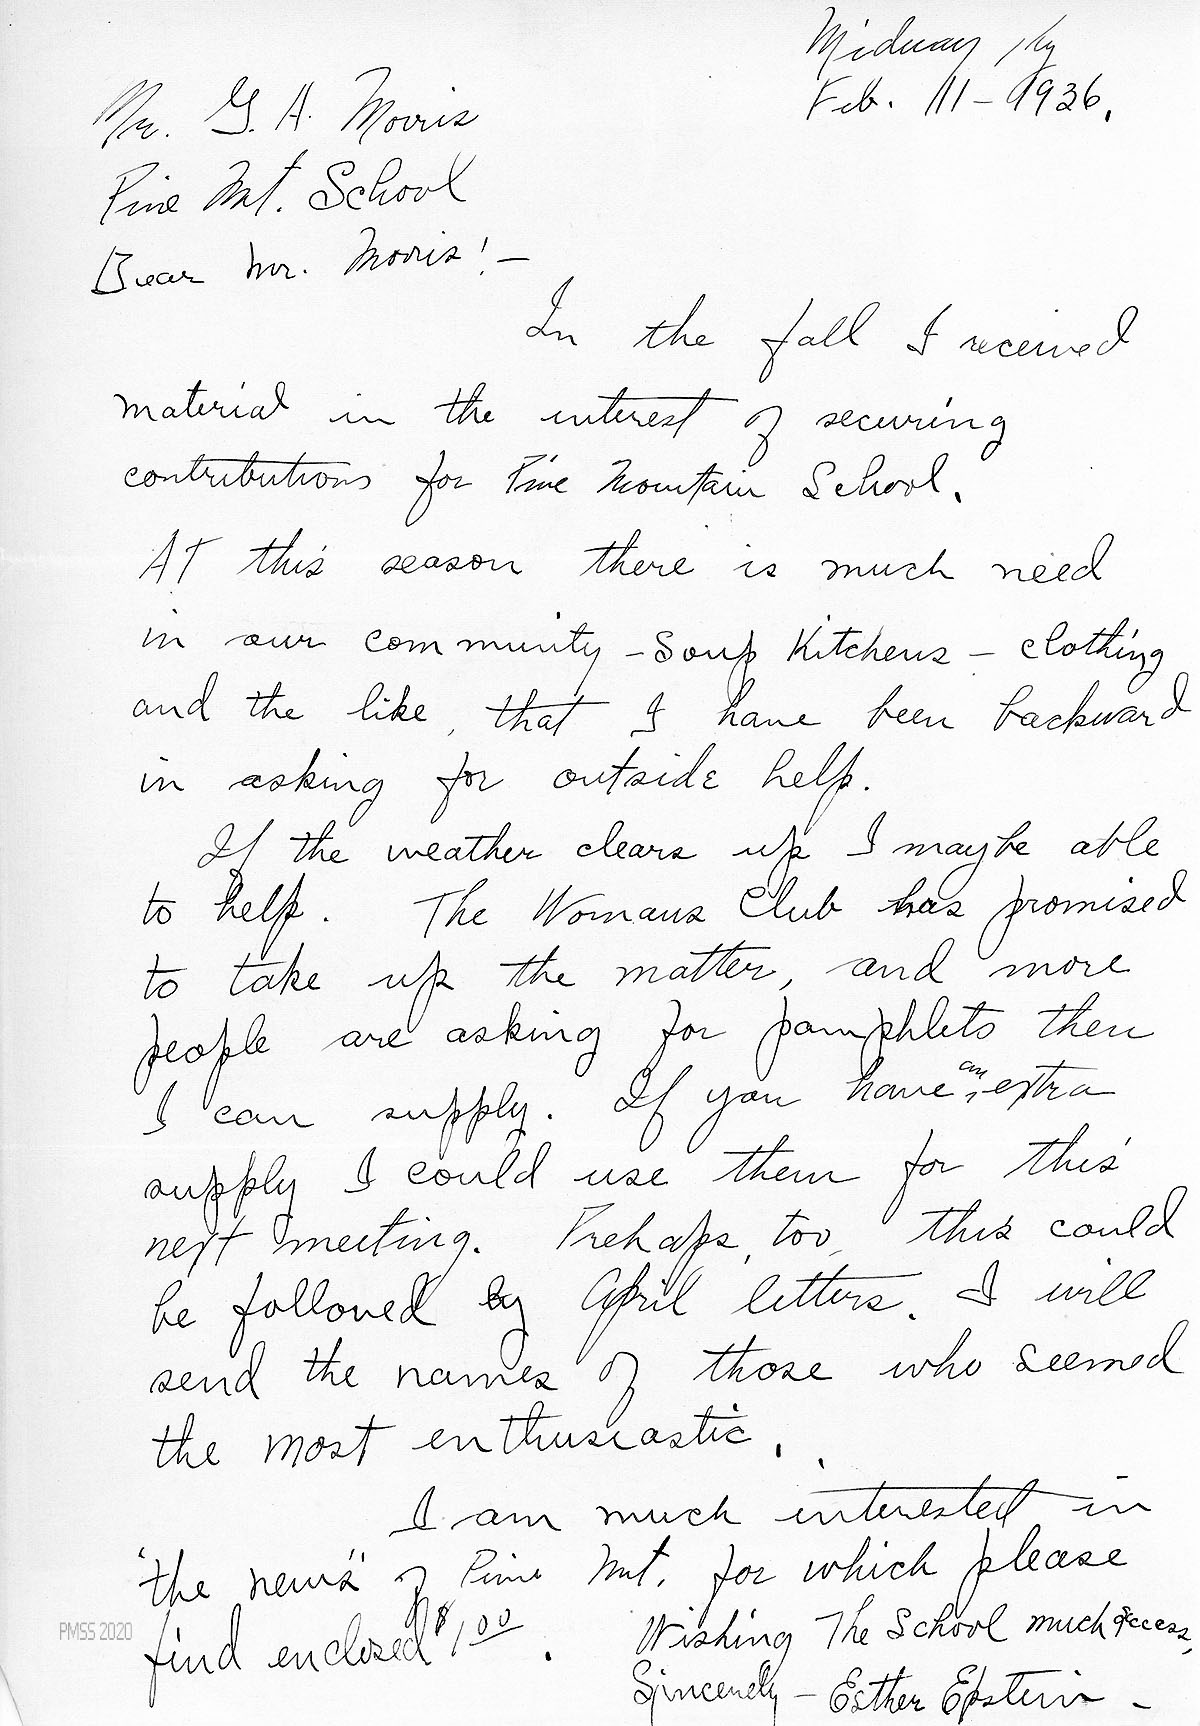 Midway, Ky
Feb. 11 - 1936.
Mr. G. A. Morris
Pine Mt. School
Dear Mr. Morris! -
In the fall I received
material in the interest of securing
contributions for Pine Mountain School.
At this season there is much need
in our community - Soup Kitchens - clothing
and the like, that I have been backward
in asking for outside help.
If the weather clears up I maybe able
to help. The Womans Club has promised
to take up the matter, and more
people are asking for pamphlets then
I can supply. If you have an extra
supply I could use them for this
next meeting. Prehaps, too, this could
be followed by April letters. I will
send the names of those who seemed
the most enthusiastic.
I am much interested in
"the news" of Pine Mt. for which please
find enclosed $1.00.
Wishing The School much success,
Sincerely - Esther Epstein -
PMSS 2020